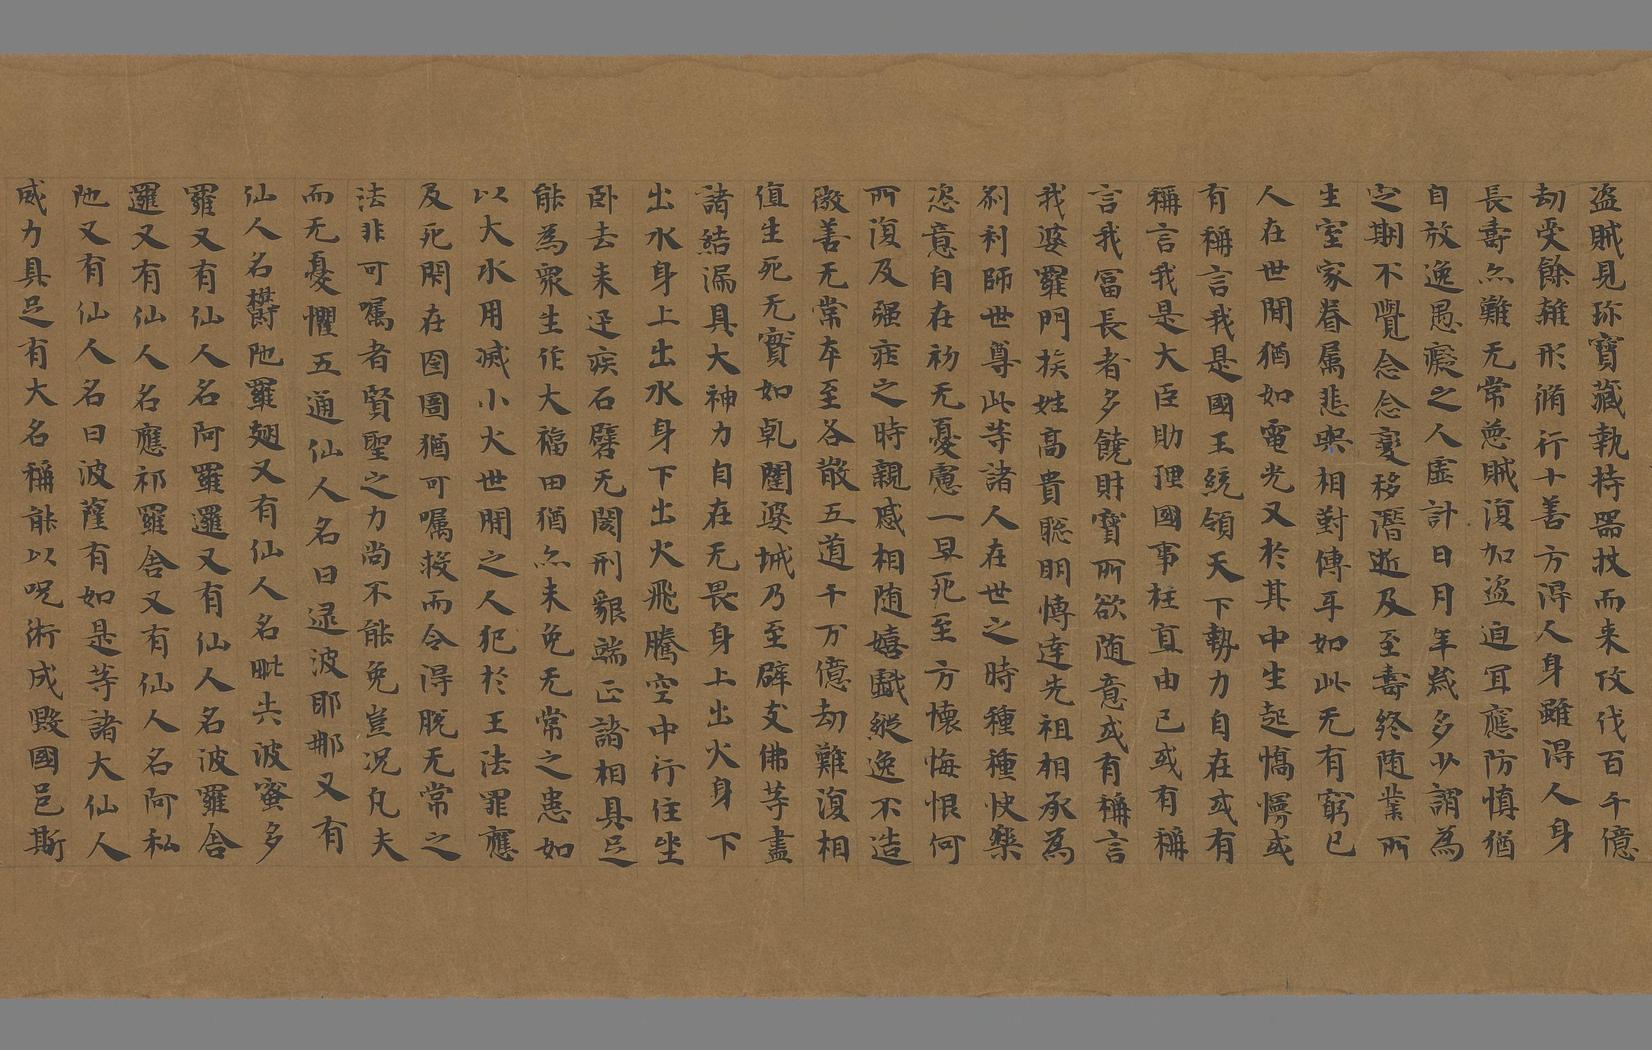 盗賊見珎寶藏執持器杖而来攻伐百千億
劫受餘雜形脩行十善方得人身雖得人身
長壽亦難无常怨賊復加盗迫冝應防慎猶
自放逸愚癡之人虚計日月年歲多少謂為
定期不覺念念變移潛逝及至壽終随業所
生室家眷属悲嘷相對傳耳如此无有窮已
人在世間猶如電光又於其中生起憍慢或
有稱言我是國王統領天下勢力自在或有
稱言我是大臣助理國事枉直由已或有稱
言我冨長者多饒財寶所欲随意或有稱言
我婆羅門族姓髙貴聡明博達先祖相承為
刹利師世尊此等諸人在世之時種種快樂
恣意自在初无憂慮一旦死至方懷悔恨何
所復及强壯之時親戚相随嬉戱縱逸不造
微善无常卒至各散五道千万億劫難復相
值生死无實如乹闥婆城乃至辟支佛等盡
諸結漏具大神力自在无畏身上出火身下
出水身上出水身下出火飛騰空中行住坐
卧去来迅疾石壁无閡形貌端正諸相具足
能為衆生作大福田猶亦未免无常之患如
以大水用滅小火世間之人犯於王法罪應
及死閇在囹圄猶可嘱救而令得脱无常之
法非可嘱者賢聖之力尚不能免豈况凡夫
而无憂懼五通仙人名曰逯波耶那又有
仙人名欝陁羅翅又有仙人名毗失波蜜多
羅又有仙人名阿羅邏又有仙人名波羅舎
邏又有仙人名應祁羅舎又有仙人名阿私
陁又有仙人名曰波薩有如是等諸大仙人
威力具足有大名稱能以呪術成毀國邑斯